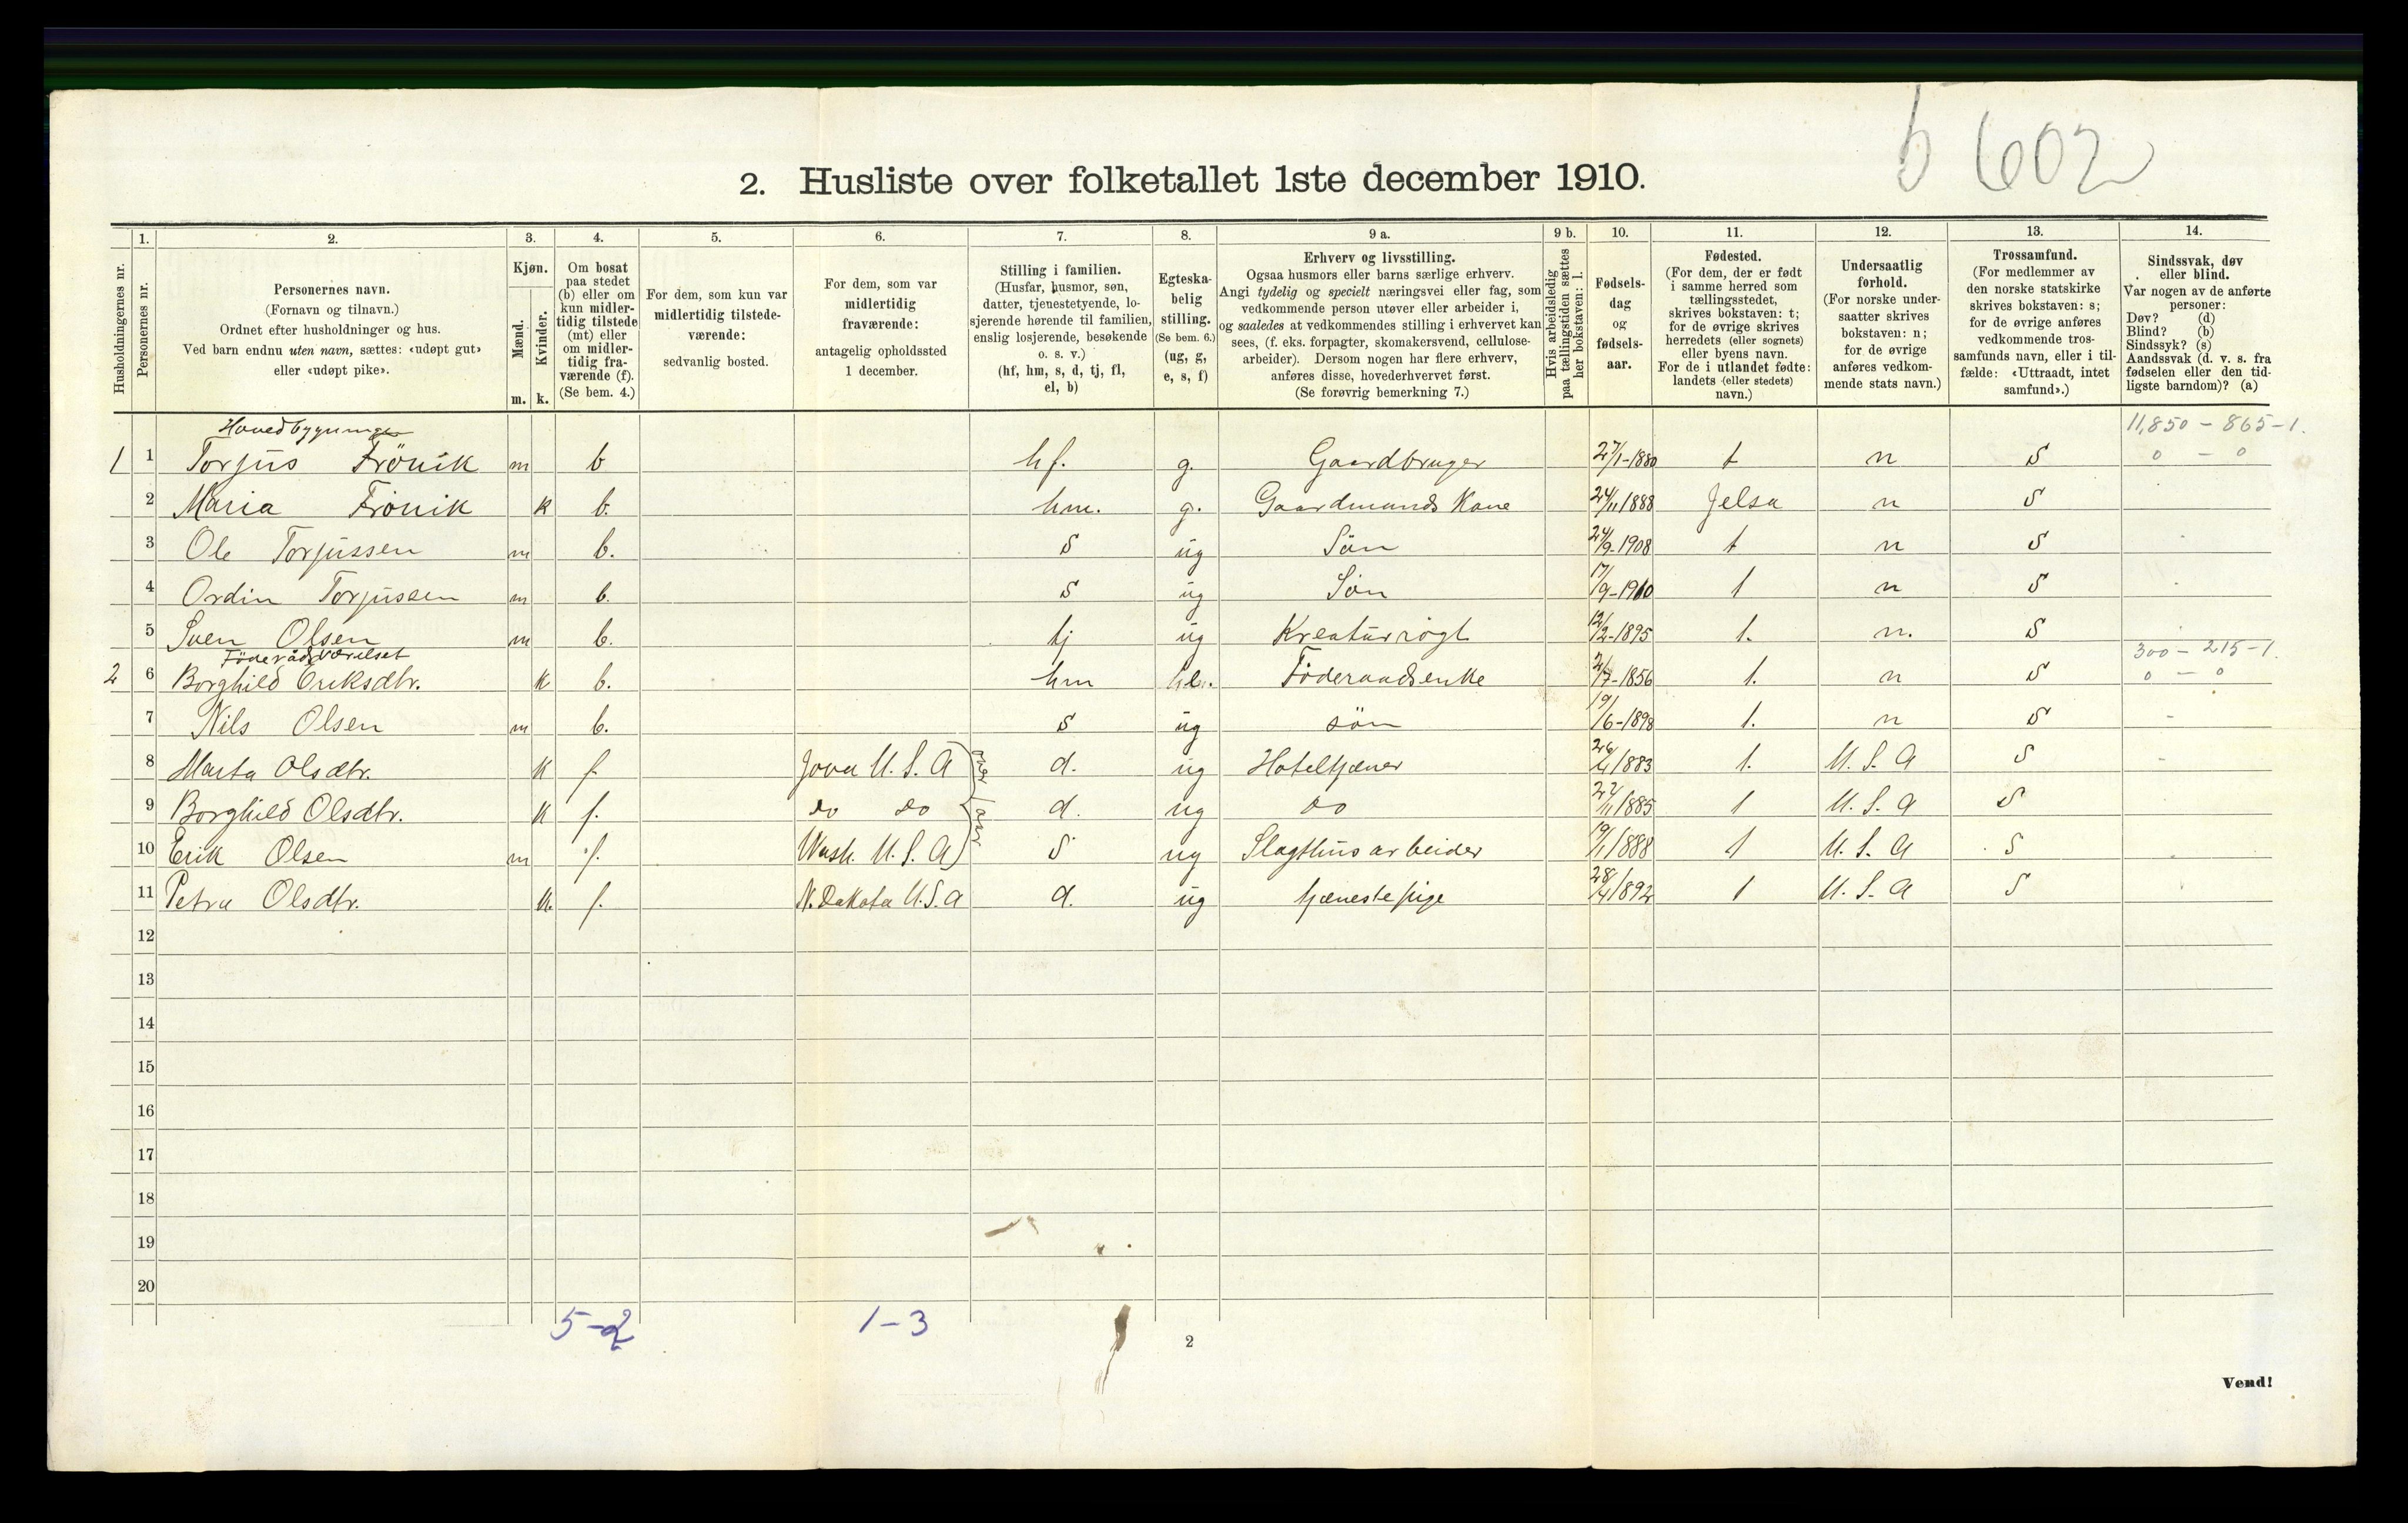 6 602
2. Husliste over folketallet 1ste december 1910.
Husholdningernes nr.
1. Personernes nr.
2. Personernes navn.
(Fornavn og tilnavn.)
Ordnet efter husholdninger og hus.
Ved barn endnu uten navn, sættes: «udøpt gut»
eller «udøpt pike».
3. Kjøn.
Mænd. Kvinder.
m. k.
4. Om bosat
paa stedet
(b) eller om
kun midler-
tidig tilstede
(mt) eller
om midler-
tidig fra-
værende (f).
(Se bem. 4.)
5. For dem, som kun var
midlertidig tilstede-
værende:
sedvanlig bosted.
6. For dem, som var
midlertidig
fraværende:
antagelig opholdssted
1 december.
7. Stilling i familien.
(Husfar, husmor, søn,
datter, tjenestetyende, lo-
sjerende hørende til familien,
enslig losjerende, besøkende
o. s. v.)
(hf, hm, s, d, tj, fl,
el, b)
8. Egteska-
belig
stilling.
(Se bem. 6.)
(ug, g,
e, s, f)
9 a. Erhverv og livsstilling.
Ogsaa husmors eller barns særlige erhverv.
Angi tydelig og specielt næringsvei eller fag, som
vedkommende person utøver eller arbeider i,
og saaledes at vedkommendes stilling i erhvervet kan
sees, (f. eks. forpagter, skomakersvend, cellulose-
arbeider). Dersom nogen har flere erhverv,
anføres disse, hovederhvervet først.
(Se forøvrig bemerkning 7.)
9 b. Hvis arbeidsledig
paa tællingstiden sættes
her bokstaven: l.
10. Fødsels-
dag
og
fødsels-
aar.
11. Fødested.
(For dem, der er født
i samme herred som
tællingsstedet,
skrives bokstaven: t;
for de øvrige skrives
herredets (eller sognets)
eller byens navn.
For de i utlandet fødte:
landets (eller stedets)
navn.)
12. Undersaatlig
forhold.
(For norske under-
saatter skrives
bokstaven: n;
for de øvrige
anføres vedkom-
mende stats navn.)
13. Trossamfund.
(For medlemmer av
den norske statskirke
skrives bokstaven: s;
for de øvrige anføres
vedkommende tros-
samfunds navn, eller i til-
fælde: «Uttraadt, intet
samfund».)
14. Sindssvak, døv
eller blind.
Var nogen av de anførte
personer:
Døv? (d)
Blind? (b)
Sindssyk? (s)
Aandssvak (d. v. s. fra
fødselen eller den tid-
ligste barndom)? (a)
11,850 - 865-1.
1 1 Torjus Frönik m b hf. g. Gaardbruger 27/1-1880 t n S 0 - 0
2 Maria Frönik k b. hm. g. Gaardmands Kone 24/11 1888 Jelsa n S
3 Ole Torjussen m b. S ug Sön 24/9-1908 t n S
4 Ordin Torjussen m b. S ug Sön 17/9-1910 t n S
5 Sven Olsen m b. tj ug Kreaturrögt 12/2-1895 t. n. S
Föderådsværelset 300 - 215-1.
2 6 Borghild Eriksdtr. k b. hm Föderaadsenke 2/7-1856 t. n S 0 - 0
7 Nils Olsen m b. S ug sön 19/6-1898 t. n S -
8 Marta Olsdtr. k f. Jova U. S. A d. ug Hoteltjæner 26/4 1883 t. U. S. A S -
9 Borghild Olsdtr. k f. do do d. ug do 22/11 1885 t U. S. A S
10 Erik Olsen m f. Wash. U. S. A S ug Slagthusarbeider 19/1 1888 t U. S. A S
over 1 aar
11 Petra Olsdtr. k. f. N. Dakota U.S.A d. ug tjænestepige 28/4 1892 t U. S. A S
12
13
14
15
16
17
18
19
20
5-2 1-3
2
Vend!